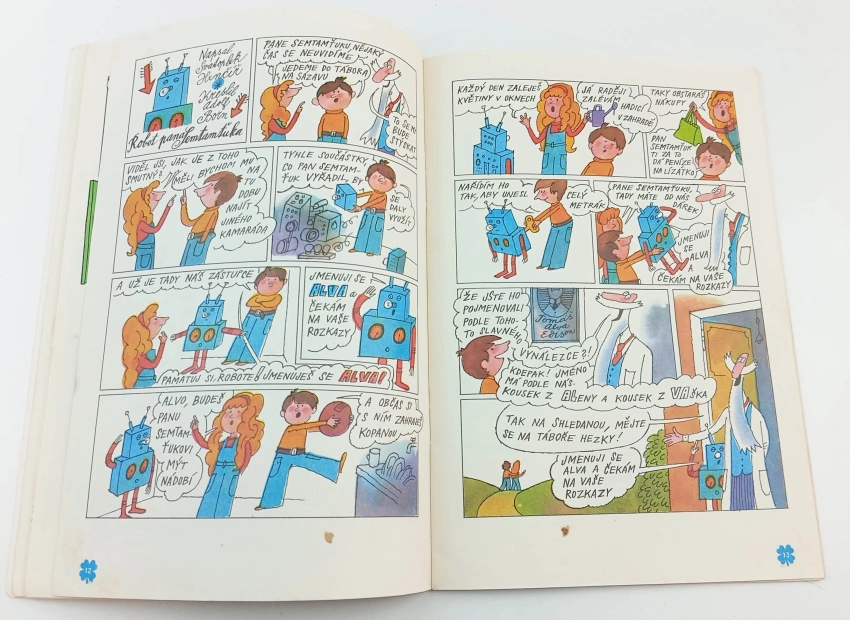 Napsal
Svatopluk
Hrnčíř
Kreslil
Adolf
Born
Robot pana Semtamťuka
PANE SEMTAMŤUKU, NĚJAKÝ
ČAS SE NEUVIDÍME
JEDEME DO TÁBORA
NA SÁZAVU
TO SE MI
BUDE
STÝSKAT
VIDĚL JSI, JAK JE Z TOHO
SMUTNÝ?
MĚLI BYCHOM MU
NA
TU
DOBU
NAJÍT
JINÉHO
KAMARÁDA
TYHLE SOUČÁSTKY,
CO PAN SEMTAM-
ŤUK VYŘADIL, BY
SE
DALY
VYUŽÍT
A UŽ JE TADY NÁŠ ZÁSTUPCE
PAMATUJ SI, ROBOTE! JMENUJEŠ SE ALVA!
JMENUJI SE
ALVA a
ČEKÁM
NA VAŠE
ROZKAZY
ALVO, BUDEŠ
PANU
SEMTAM-
ŤUKOVI
MÝT
NÁDOBÍ
A OBČAS SI
S NÍM ZAHRAJEŠ
KOPANOU
12
KAŽDÝ DEN ZALEJEŠ
KVĚTINY V OKNECH
JÁ RADĚJI
ZALÉVÁM
HADICÍ
V ZAHRADĚ
TAKY OBSTARÁŠ
NÁKUPY
PAN
SEMTAMŤUK
TI ZA TO
DÁ PENÍZE
NA LÍZÁTKO
NAŘÍDÍM HO
TAK, ABY UNESL
CELÝ
METRÁK
PANE SEMTAMŤUKU,
TADY MÁTE OD NÁS
DÁREK
JMENUJI
SE
ALVA
A
ČEKÁM NA VAŠE
ROZKAZY
ŽE JSTE HO
POJMENOVALI
PODLE TOHO-
TO SLAVNÉHO
VYNÁLEZCE?!
Tomáš
Alva
Edison
KDEPAK! JMÉNO
MÁ PODLE NÁS.
KOUSEK Z ALENY A KOUSEK Z VAŠKA
TAK NA SHLEDANOU, MĚJTE
SE NA TÁBOŘE HEZKY!
JMENUJI SE
ALVA A ČEKÁM
NA VAŠE
ROZKAZY
13